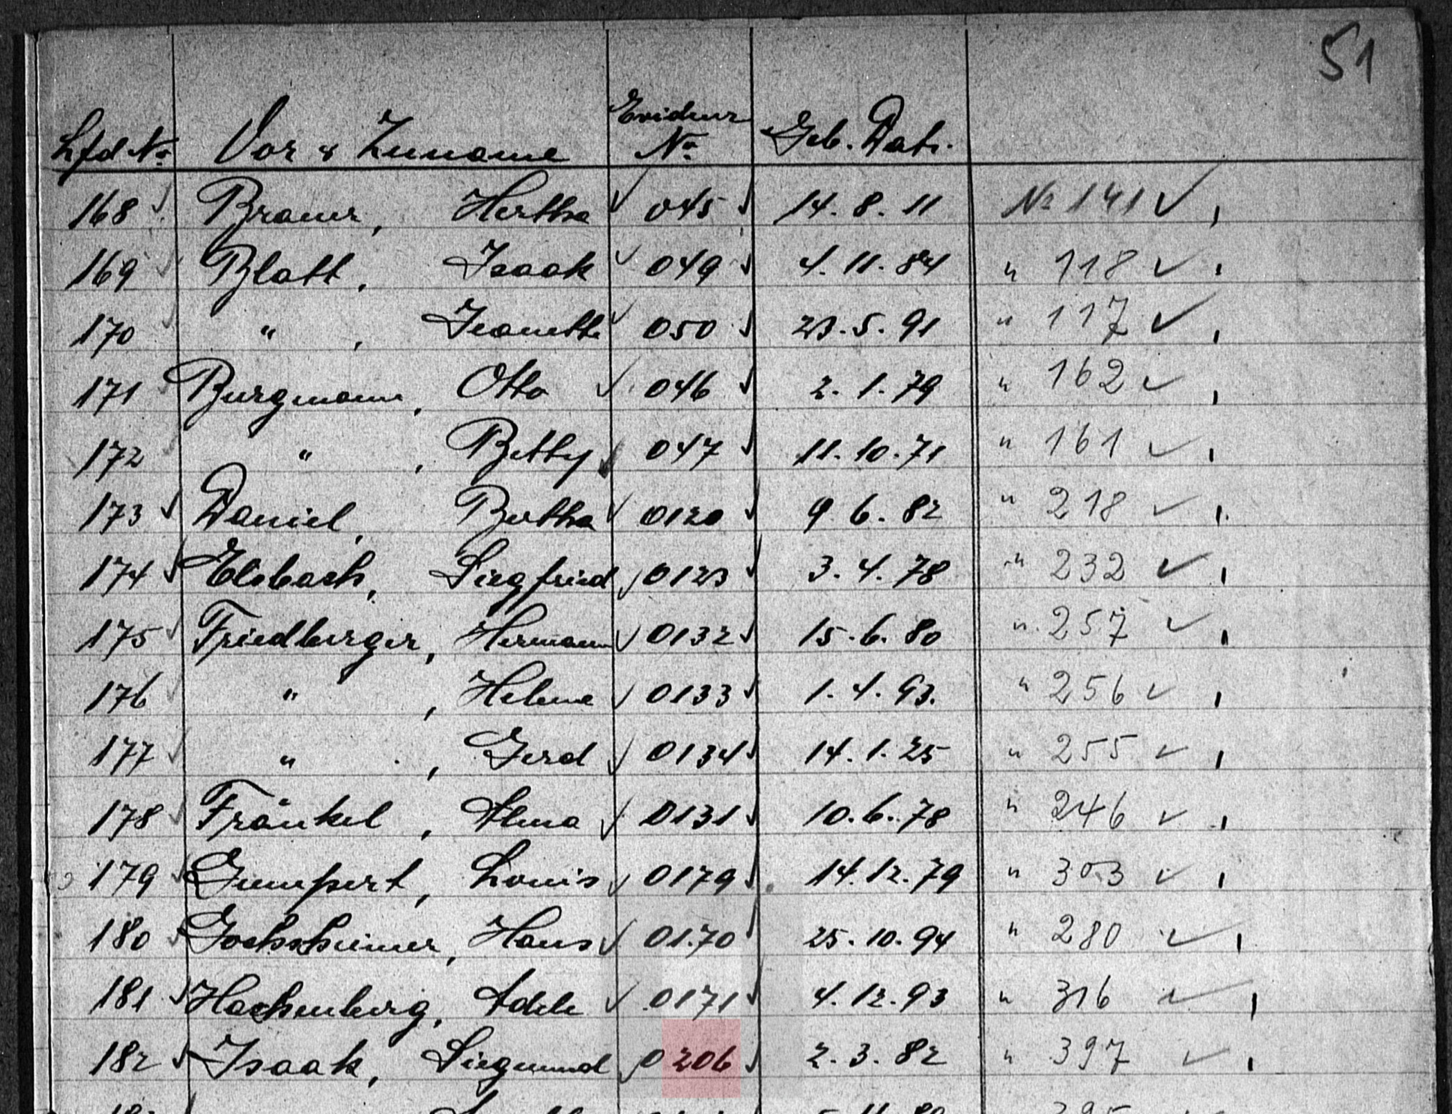 51
Lfd № Vor & Zuname Evidenz № Geb. Dat.
168 Brauer, Hertha 045 14.8.11 № 141 ✓
169 Blatt, Isaak 049 4.11.84 " 118 ✓
170 " , Jeanette 050 23.5.91 " 117 ✓
171 Burgmann, Otto 046 2.1.79 " 162 ✓
172 " , Betty 047 11.10.71 " 161 ✓
173 Daniel, Bertha 0120 9.6.82 " 218 ✓
174 Elsbach, Siegfried 0123 3.4.78 " 232 ✓
175 Friedberger, Hermann 0132 15.6.80 " 257 ✓
176 " , Helene 0133 1.4.93. " 256 ✓
177 " , Gerd 0134 14.1.25 " 255 ✓
178 Fränkel, Alma 0131 10.6.78 " 246 ✓
179 Gumpert, Louis 0179 14.12.79 " 303 ✓
180 Gochsheimer, Hans 0170 25.10.94 " 280 ✓
181 Hachenberg, Adele 0171 4.12.93 " 316 ✓
182 Isaak, Siegmund 0206 2.3.82 " 397 ✓